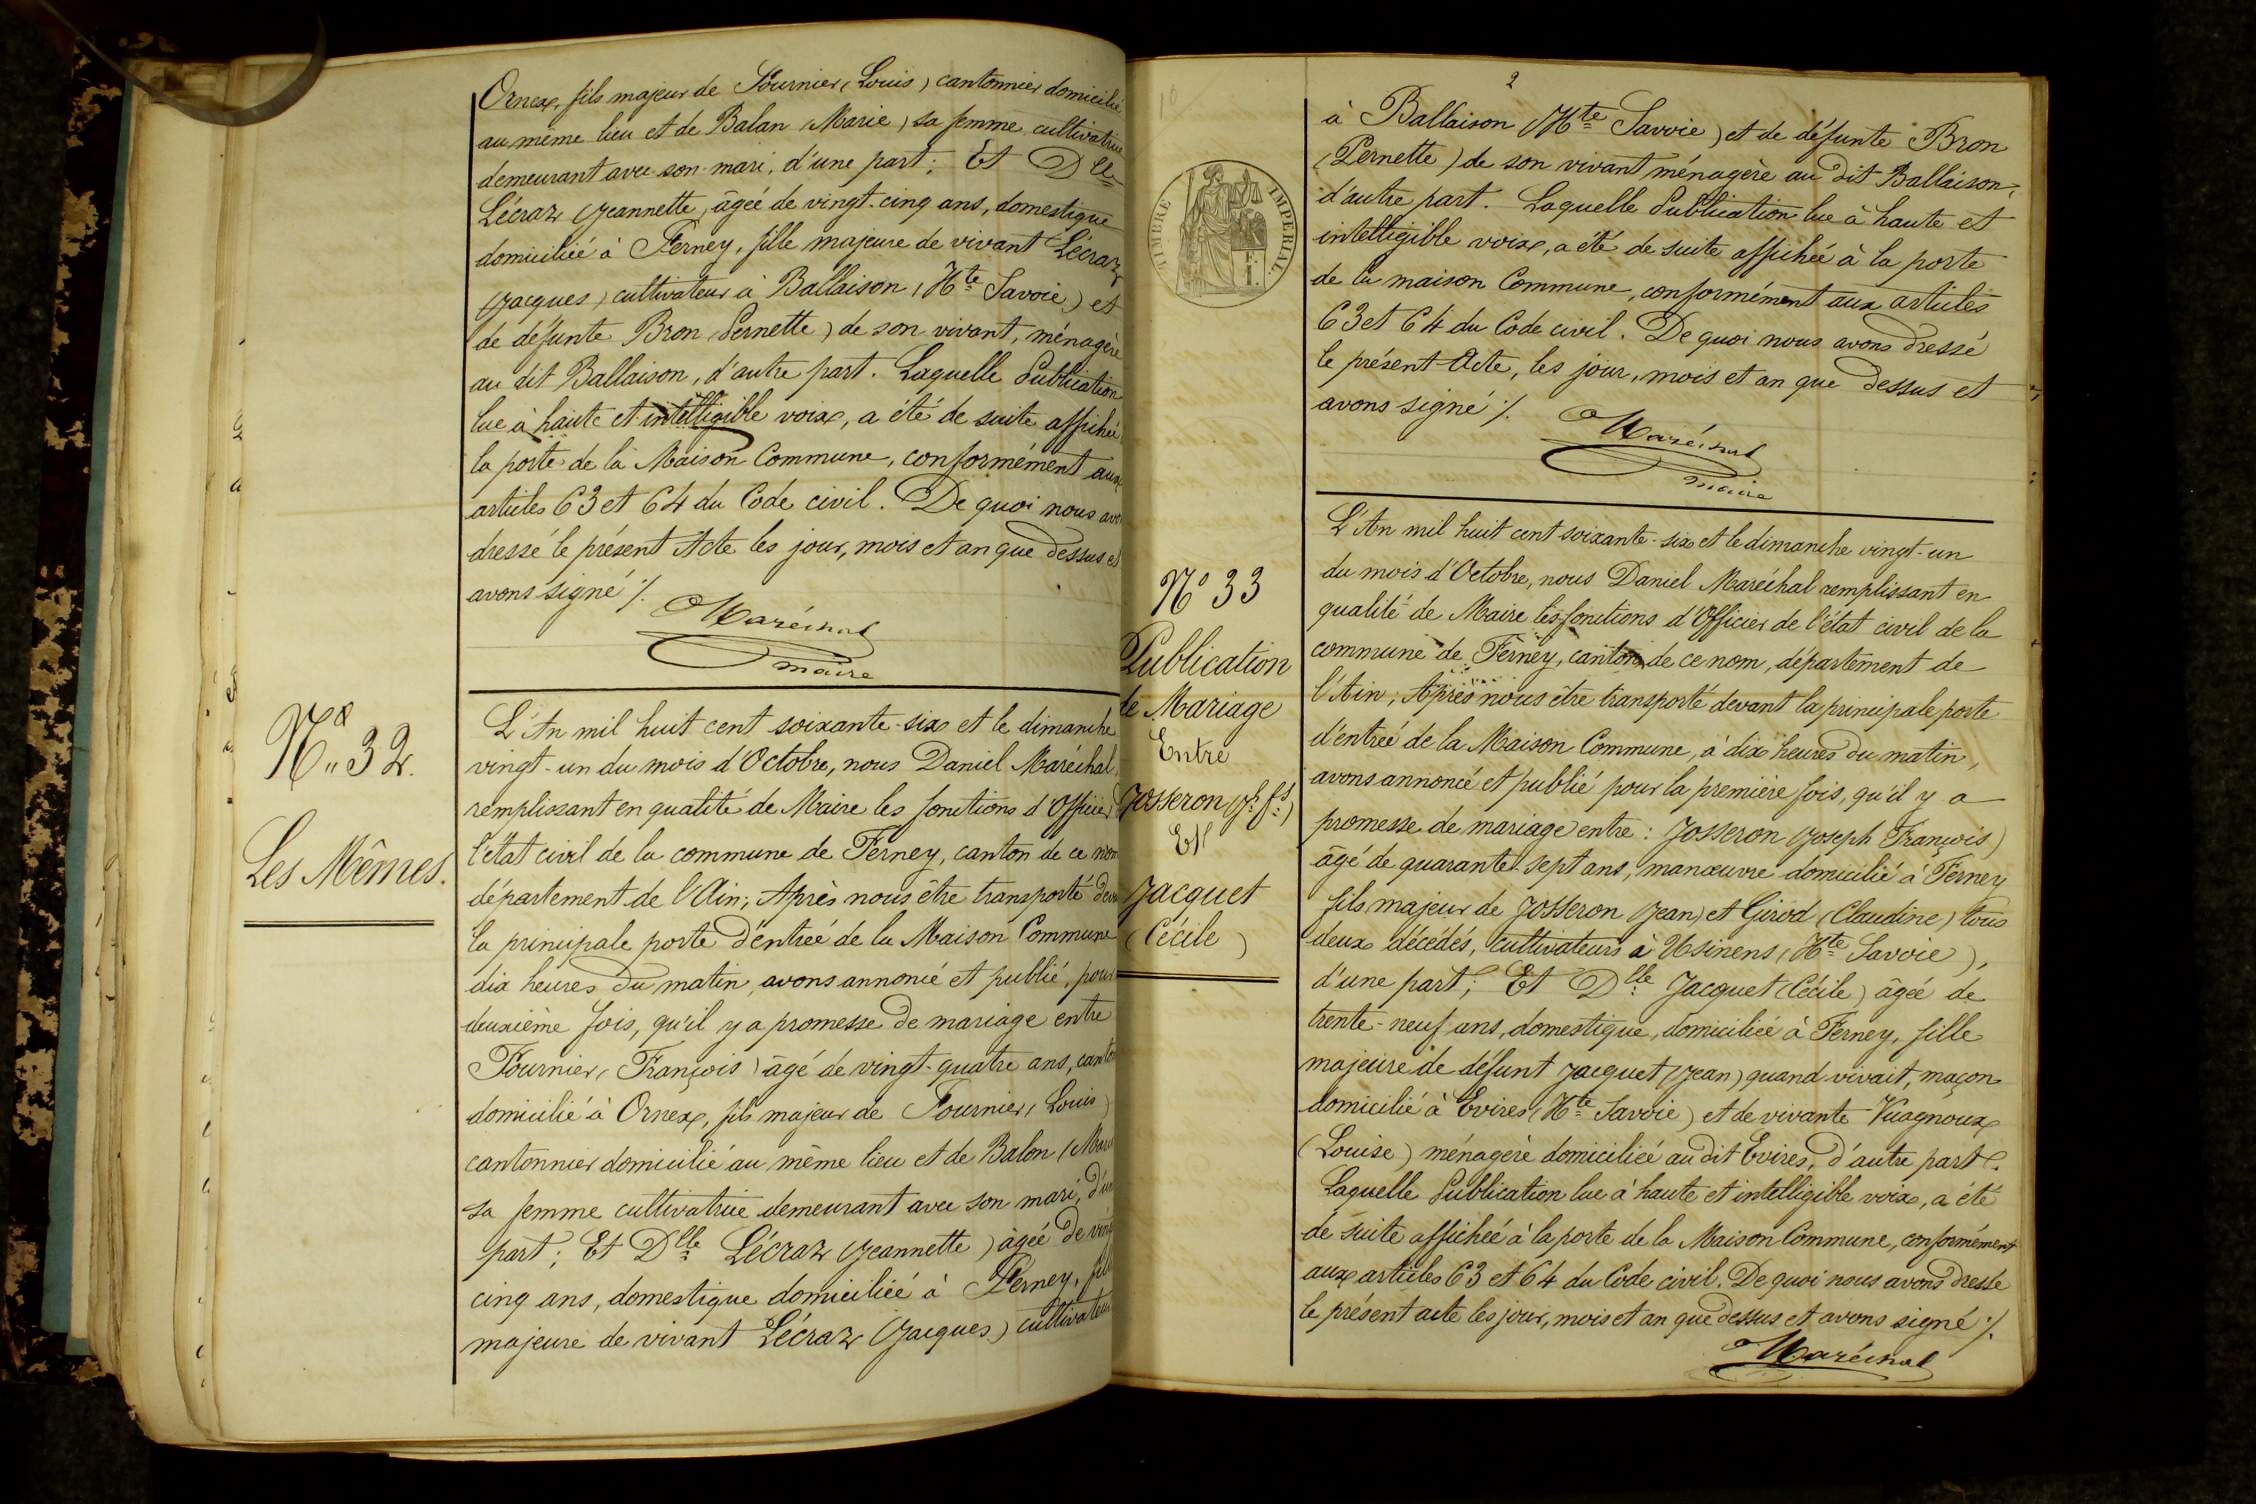 Ornex, fils majeur de Fournier (Louis) cantonnier domicilié
au même lieu et de Balan (Marie) sa femme cultivatrice
demeurant avec son mari, d'une part ; Et Dlle
Lécraz (Jeannette, âgée de vingt-cinq ans, domestique
domiciliée à Ferney, fille majeure de vivant Lécraz
(Jacques) cultivateur à Ballaison (Hte Savoie) et
de défunte Bron (Pernette) de son vivant, ménagère
au dit Ballaison, d'autre part. Laquelle Publication
lue à haute et intelligible voix, a été de suite affichée
la porte de la Maison Commune, conformément aux
articles 63 et 64 du Code civil. De quoi nous avo
dressé le présent Acte les jour, mois et an que dessus et
avons signé ./.
Maréchal
maire
No 32.
Les Mêmes.
L'An mil huit cent soixante-six et le dimanche
vingt-un du mois d'Octobre, nous Daniel Maréchal
remplissant en qualité de Maire les fonctions d'Officier d
l'état civil de la commune de Ferney, canton de ce nom
département de l'Ain ; Après nous être transporté deva
la principale porte d'entrée de la Maison Commune
dix heures du matin, avons annoncé et publié, pour
deuxième fois, qu'il y a promesse de mariage entre
Fournier (François) âgé de vingt-quatre ans, canto
domicilié à Ornex, fils majeur de Fournier (Louis)
cantonnier domicilié au même lieu et de Balon (Mari
sa femme cultivatrice demeurant avec son mari, d'un
part ; Et Dlle Lécraz (Jeannette) âgée de ving
cinq ans, domestique domiciliée à Ferney, fille
majeure de vivant Lécraz (Jacques) cultivateur
2
TIMBRE IMPERIAL.
à Ballaison (Hte Savoie) et de défunte Bron
(Pernette) de son vivant ménagère au dit Ballaison,
d'autre part. Laquelle Publication lue à haute et
intelligible voix, a été de suite affichée à la porte
de la maison Commune, conformément aux articles
63 et 64 du Code civil. De quoi nous avons dressé
le présent Acte, les jour, mois et an que dessus et
avons signé ./.
Maréchal
maire
No 33
Publication
de Mariage
Entre
Josseron (Jh. fs.)
Et
Jacquet
(Cécile)
L'An mil huit cent soixante-six et le dimanche vingt-un
du mois d'Octobre, nous Daniel Maréchal remplissant en
qualité de Maire les fonctions d'Officier de l'état civil de la
commune de Ferney, canton de ce nom, département de
l'Ain ; Après nous être transporté devant la principale porte
d'entrée de la Maison Commune, à dix heures du matin,
avons annoncé et publié pour la première fois, qu'il y a
promesse de mariage entre : Josseron (Joseph François)
âgé de quarante-sept ans, manœuvre domicilié à Ferney
fils majeur de Josseron (Jean) et Girod (Claudine) tous
deux décédés, cultivateurs à Usinens (Hte Savoie),
d'une part ; Et Dlle Jacquet (Cécile) âgée de
trente-neuf ans, domestique, domiciliée à Ferney, fille
majeure de défunt Jacquet (Jean) quand vivait, maçon
domicilié à Evires (Hte Savoie) et de vivante Vuagnoux
(Louise) ménagère domiciliée au dit Evires, d'autre part.
Laquelle Publication lue à haute et intelligible voix, a été
de suite affichée à la porte de la Maison Commune, conformément
aux articles 63 et 64 du Code civil. De quoi nous avons dressé
le présent acte les jour, mois et an que dessus et avons signé ./.
Maréchal